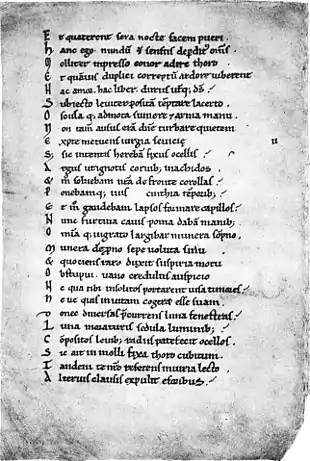 E t quaterent sera nocte facem pueri.
h anc ego nundũ & sensus depditꝰ om̃s.
M olliter inpresso conor adire thoro
E t quãuis duplici correptũ ardore iuberent
H ac amor. hac liber. durus utq; dš
S ubiecto leuiter posita tẽptare lacerto.
O sculaq; admota sumere & arma manu.
N on tam̃ ausus erã dñe turbare quietem
E xpte metuens iurgia seuicie
S ; sic intentis herebã fixus ocellis
A rgus ut ignotis cornib; inachidos
& m̃ soluebam nr̃a de fronte corollas
P onebamq; tuis cinthia tẽporib;
E t m̃ gaudebam lapsos formare capillos
N unc furtiua cauis poma dabã manib;
O mĩaq; ingrato largibar munera sõpno.
M unera deprono sepe uoluta sinu
& quociens raro duxit suspiria motu
O bstupui uano credulus auspicio
N e qua tibi insolitos portarent uisa timores
N e ue quis inuitam cogeret esse suam.
D onec diuersas p̃currens luna fenestras
L una moraturis sedula luminib;
C õpositos leuib; radiis patefecit ocellos.
S ic ait in molli fixa thoro cubitum.
T andem te nr̃o referens iniuria lecto
A lterius clausis expulit eforibus.